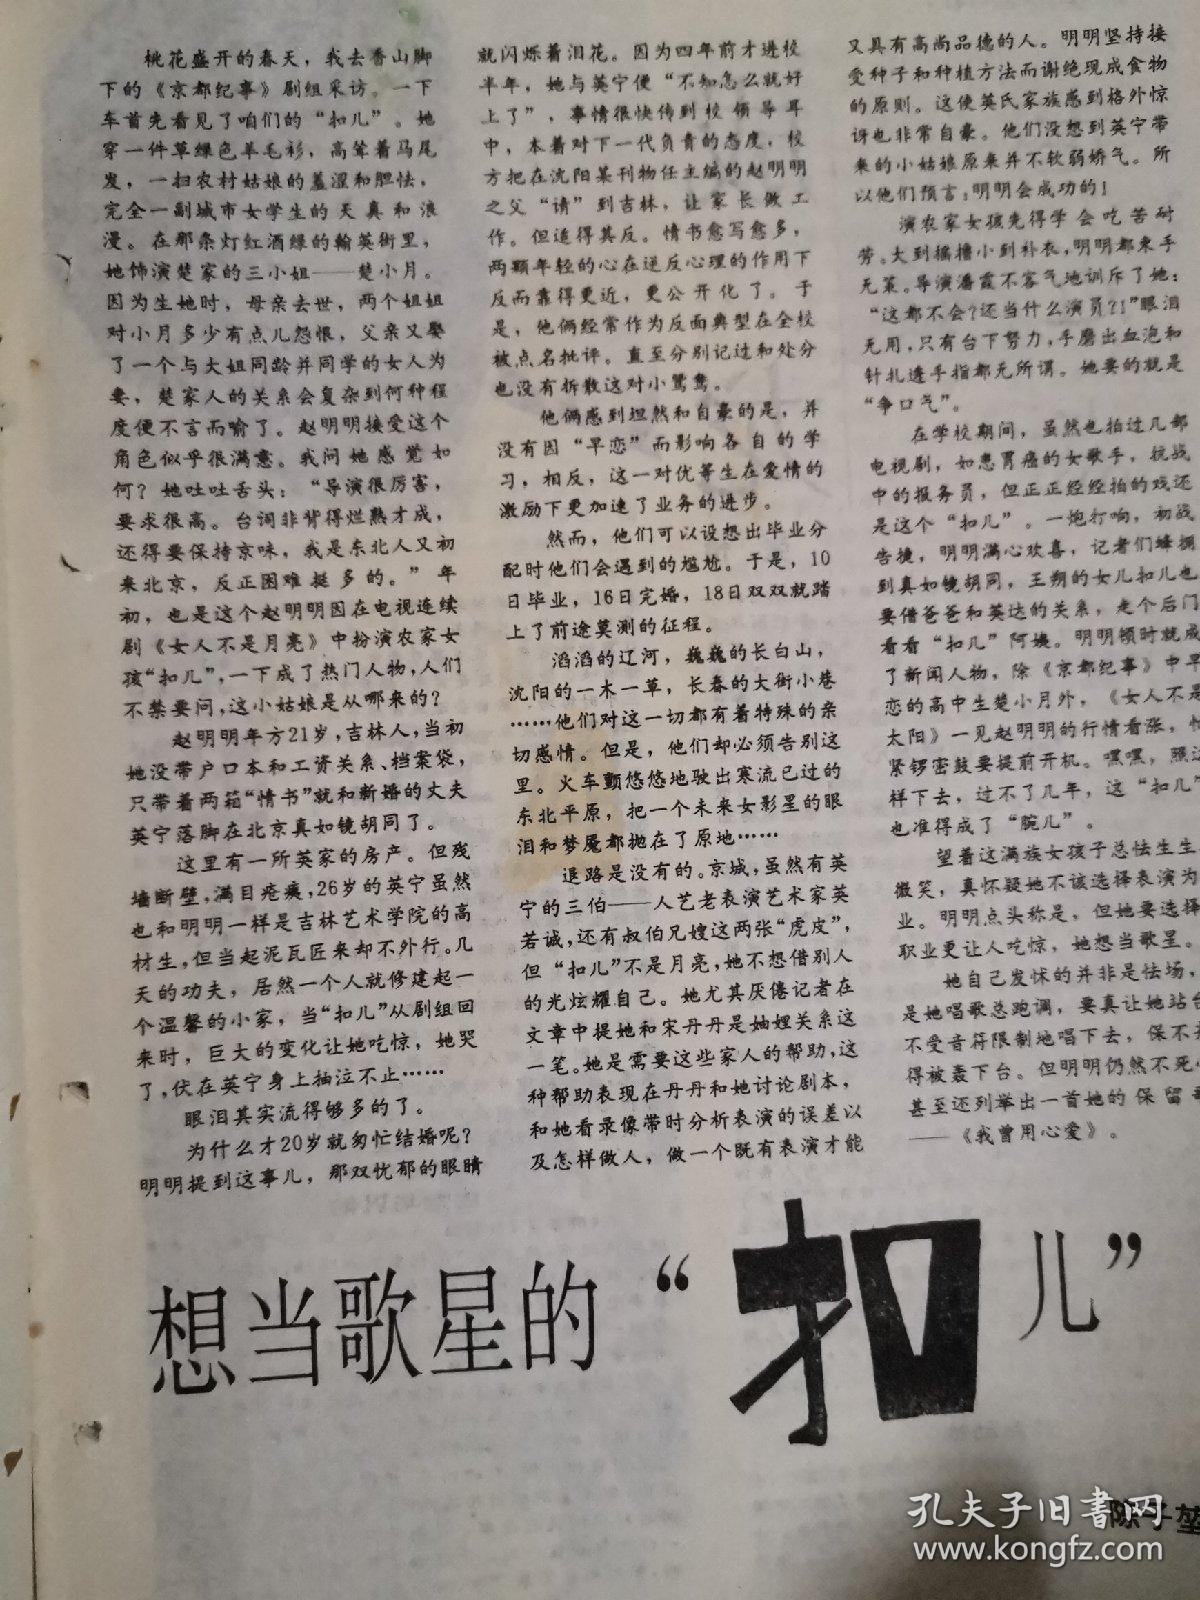 桃花盛开的春天，我去香山脚
下的《京都纪事》剧组采访。一下
车首先看见了咱们的“扣儿”。她
穿一件草绿色羊毛衫，高耸着马尾
发，一扫农村姑娘的羞涩和胆怯，
完全一副城市女学生的天真和浪
漫。在那条灯红酒绿的翰英街里，
她饰演楚家的三小姐——楚小月。
因为生她时，母亲去世，两个姐姐
对小月多少有点儿怨恨，父亲又娶
了一个与大姐同龄并同学的女人为
妻，楚家人的关系会复杂到何种程
度便不言而喻了。赵明明接受这个
角色似乎很满意。我问她感觉如
何？她吐吐舌头：“导演很厉害，
要求很高。台词非背得烂熟才成，
还得要保持京味，我是东北人又初
来北京，反正困难挺多的。”年
初，也是这个赵明明因在电视连续
剧《女人不是月亮》中扮演农家女
孩“扣儿”，一下成了热门人物，人们
不禁要问，这小姑娘是从哪来的？
赵明明年方21岁，吉林人，当初
她没带户口本和工资关系、档案袋，
只带着两箱“情书”就和新婚的丈夫
英宁落脚在北京真如镜胡同了。
这里有一所英家的房产。但残
墙断壁，满目疮痍，26岁的英宁虽然
也和明明一样是吉林艺术学院的高
材生，但当起泥瓦匠来却不外行。几
天的功夫，居然一个人就修建起一
个温馨的小家，当“扣儿”从剧组回
来时，巨大的变化让她吃惊，她哭
了，伏在英宁身上抽泣不止……
眼泪其实流得够多的了。
为什么才20岁就匆忙结婚呢？
明明提到这事儿，那双忧郁的眼睛
就闪烁着泪花。因为四年前才进校
半年，她与英宁便“不知怎么就好
上了”，事情很快传到校领导耳
中，本着对下一代负责的态度，校
方把在沈阳某刊物任主编的赵明明
之父“请”到吉林，让家长做工
作。但适得其反。情书愈写愈多，
两颗年轻的心在逆反心理的作用下
反而靠得更近，更公开化了。于
是，他俩经常作为反面典型在全校
被点名批评。直至分别记过和处分
也没有拆散这对小鸳鸯。
他俩感到坦然和自豪的是，并
没有因“早恋”而影响各自的学
习，相反，这一对优等生在爱情的
激励下更加速了业务的进步。
然而，他们可以设想出毕业分
配时他们会遇到的尴尬。于是，10
日毕业，16日完婚，18日双双就踏
上了前途莫测的征程。
滔滔的辽河，巍巍的长白山，
沈阳的一木一草，长春的大街小巷
……他们对这一切都有着特殊的亲
切感情。但是，他们却必须告别这
里。火车颤悠悠地驶出寒流已过的
东北平原，把一个未来女影星的眼
泪和梦魇都抛在了原地……
退路是没有的。京城，虽然有英
宁的三伯——人艺老表演艺术家英
若诚，还有叔伯兄嫂这两张“虎皮”，
但“扣儿”不是月亮，她不想借别人
的光炫耀自己。她尤其厌倦记者在
文章中提她和宋丹丹是妯娌关系这
一笔。她是需要这些家人的帮助，这
种帮助表现在丹丹和她讨论剧本，
和她看录像带时分析表演的误差以
及怎样做人，做一个既有表演才能
又具有高尚品德的人。明明坚持接
受种子和种植方法而谢绝现成食物
的原则。这使英氏家族感到格外惊
讶也非常自豪。他们没想到英宁带
来的小姑娘原来并不软弱娇气。所
以他们预言：明明会成功的！
演农家女孩先得学会吃苦耐
劳。大到搞播小到补衣，明明都束手
无策。导演潘霞不客气地训斥了她：
“这都不会？还当什么演员？！”眼泪
无用，只有台下努力，手磨出血泡和
针扎透手指都无所谓。她要的就是
“争口气”。
在学校期间，虽然也拍过几部
电视剧，如患胃癌的女歌手，抗战
中的报务员，但正正经经拍的戏还
是这个“扣儿”。一炮打响，初战
告捷，明明满心欢喜，记者们蜂拥
到真如镜胡同，王朔的女儿扣儿也
要借爸爸和英达的关系，走个后门
看看“扣儿”阿姨。明明顿时就成
了新闻人物，除《京都纪事》中早
恋的高中生楚小月外，《女人不是
太阳》一见赵明明的行情看涨，
紧锣密鼓要提前开机。嘿嘿，照这
样下去，过不了几年，这“扣儿”
也准得成了“腕儿”。
望着这满族女孩子总怯生生
微笑，真怀疑她不该选择表演为
业。明明点头称是，但她要选择
职业更让人吃惊，她想当歌星。
她自己发怵的并非是怯场，
是她唱歌总跑调，要真让她站台
不受音符限制地唱下去，保不
得被轰下台。但明明仍然不死
甚至还列举出一首她的保留
——《我曾用心爱》。
想当歌星的“扣儿”
陈子堃
孔夫子旧书网
www.kongfz.com